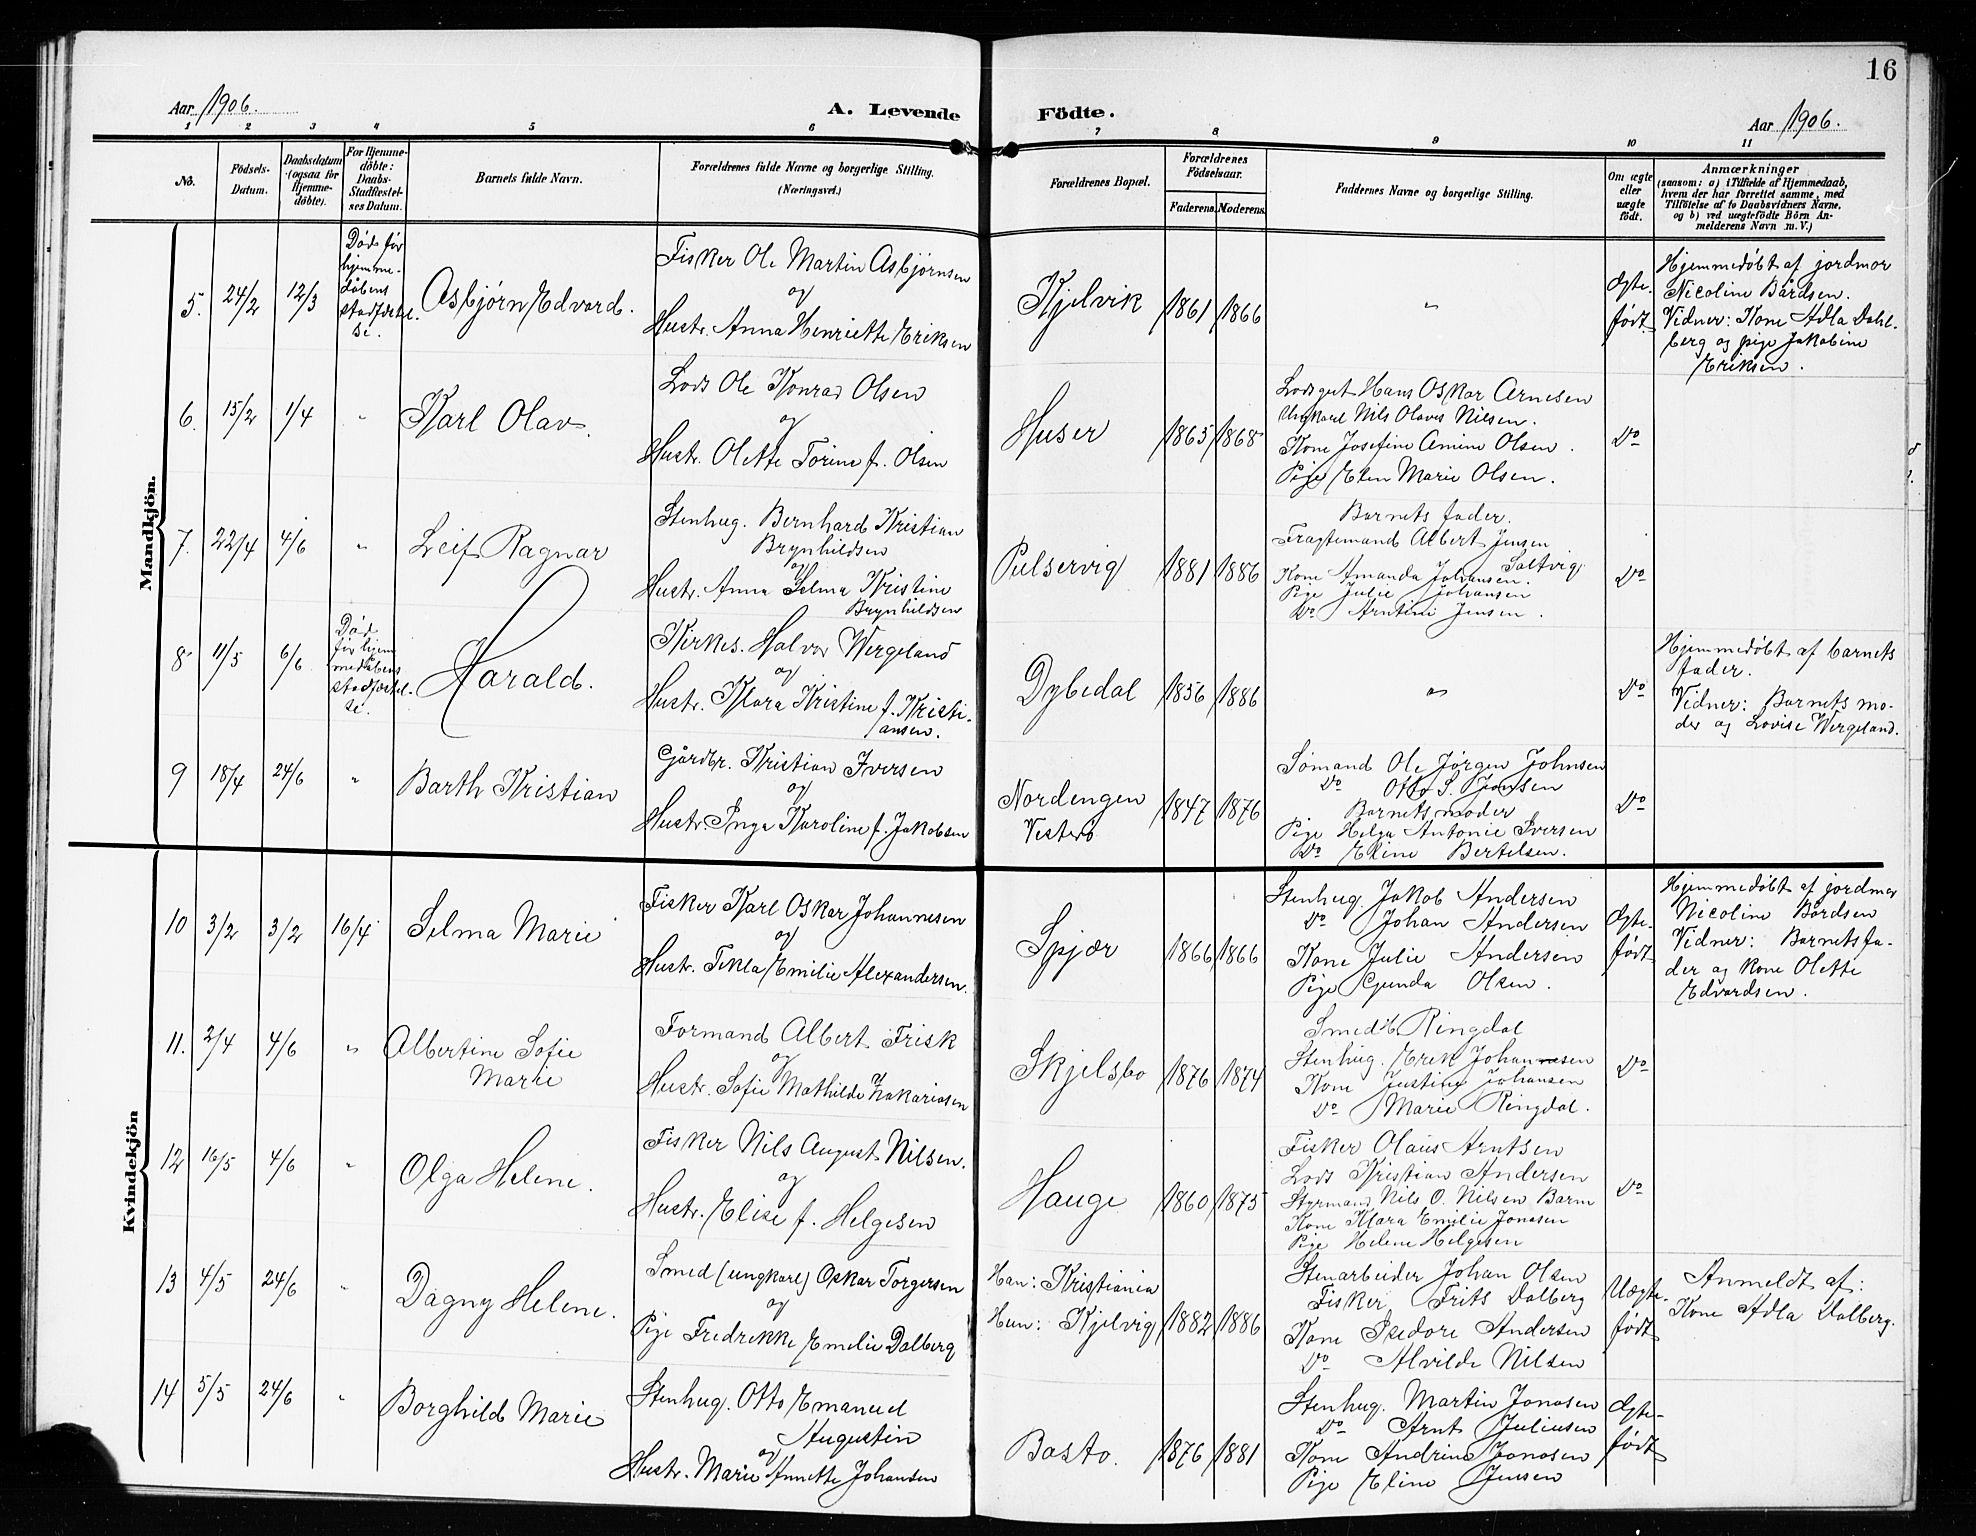 16
Aar 1906.
A. Levende Födte.
Aar 1906.
1 2 3 4 5 6 7 8 9 10 11
No.
Födsels-
Datum.
Daabsdatum
(ogsaa for
Hjemme-
döbte).
For Hjemme-
döbte:
Daabs-
Stadfæstel-
ses Datum.
Barnets fulde Navn.
Forældrenes fulde Navne og borgerlige Stilling.
(Næringsvei.)
Forældrenes Bopæl.
Forældrenes
Födselsaar.
Faderens. Moderens.
Faddernes Navne og borgerlige Stilling.
Om ægte
eller
uægte
födt.
Anmærkninger
(saasom: a) i Tilfælde af Hjemmedaab,
hvem der har forrettet samme, med
Tilföielse af to Daabsvidners Navne,
og b) ved uægtefödte Börn An-
melderens Navn m. V.)
Mandkjön.
5. 24/2 12/3
Død før
hjemme-
døbens
stadfæstel-
se.
Asbjørn Edvard.
Fisker Ole Martin Asbjørnsen
og
Hustr. Anna Henriette Eriksen
Kjelvik 1861 1866 "
Ægte-
født
Hjemmedøbt af jordmor
Nicoline Bårdsen.
Vidner: Kone Adla Dahl-
berg og pige Jakobine
Eriksen.
6. 15/2 1/4 " Karl Olav.
Lods Ole Konrad Olsen
og
Hustr. Olette Torine f. Olsen
Huser 1865 1868
Lodsgut Hans Oskar Arnesen
Ungkarl Nils Olaves Nilsen.
Kone Josefine Amine Olsen.
Pige Elen Marie Olsen.
Do
7. 22/4 4/6 " Leif Ragnar
Stenhug. Bernhard Kristian
Brynhildsen
og
Hustr. Anna Selma Kristine
Brynhildsen
Pulservig 1881 1886
Barnets fader.
Fragtemand Albert Jensen
Saltvig
Kone Amanda Johansen.
Pige Julie Johansen
Do Arntine Jensen.
Do
8 11/5 6/6
Død
før hjem
medøbens
stadfæstel-
se.
Harald.
Kirkes. Halvor Wergeland
og
Hustr. Klara Kristine f. Kristi-
ansen.
Dybedal 1856 1886 "
Do
Hjemmedøbt af barnets
fader.
Vidner: Barnets mo-
der og Lovise Wergeland.
9 18/4 24/6 " Barth Kristian
Gårdbr. Kristian Iversen
og
Hustr. Inga Karoline f. Jakobsen
Nordengen
Vesterø
1847 1876
Sømand Ole Jørgen Johnsen
Do Otto S. Jensen
Barnets moder
Pige Helga Antonie Iversen
Do Eline Bertelsen.
Do
Kvindekjön
10 3/2 3/2 16/4 Selma Marie
Fisker Karl Oskar Johannesen
og
Hustr. Tekla Emilie Alexandersen.
Spjær 1866 1866
Stenhug. Jakob Andersen
Do Johan Andersen
Kone Julie Andersen
Pige Gunda Olsen.
Ægte-
født
Hjemmedøbt af jordmor
Nicoline Bårdsen
Vidner: Barnets fa-
der og kone Olette
Edvardsen.
11. 2/4 4/6 " Albertine Sofie
Marie
Formand Albert Frisk
og
Hustr. Sofie Mathilde Zakariasen
Skjelsbo 1876 1874
Smed H. Ringdal
Stenhug. Erik Johannesen
Kone Justine Johansen
Do Marie Ringdal.
Do
12 16/5 4/6 " Olga Helene.
Fisker Nils August Nilsen.
og
Hustr. Elise f. Helgesen
Hauge 1860 1875
Fisker Olaus Arntsen
Lods Kristian Andersen
Styrmand Nils O. Nilsen Barm
Kone Klara Emilie Jonasen
Pige Helene Helgesen
Do
13 4/5 24/6 " Dagny Helene.
Smed (ungkarl) Oskar Torgersen
og
Pige Fredrekke Emelie Dalberg
Han: Kristiania
Hun: Kjelvig
1882 1886
Stenarbeider Johan Olsen
Fisker Frits Dalberg
Kone Isedore Andersen
Do Alvilde Nilsen
Uægte-
født
Anmeldt af:
Kone Adla Dalberg.
14 5/5 24/6 " Borghild Marie
Stenhug. Otto Emanuel
Augustin
og
Hustr. Marie Annette Johansen
Bastø. 1876 1881
Stenhug. Martin Jonasen
Do Arnt Juliusen
Kone Andrine Jonasen
Pige Eline Jensen
Ægte-
født